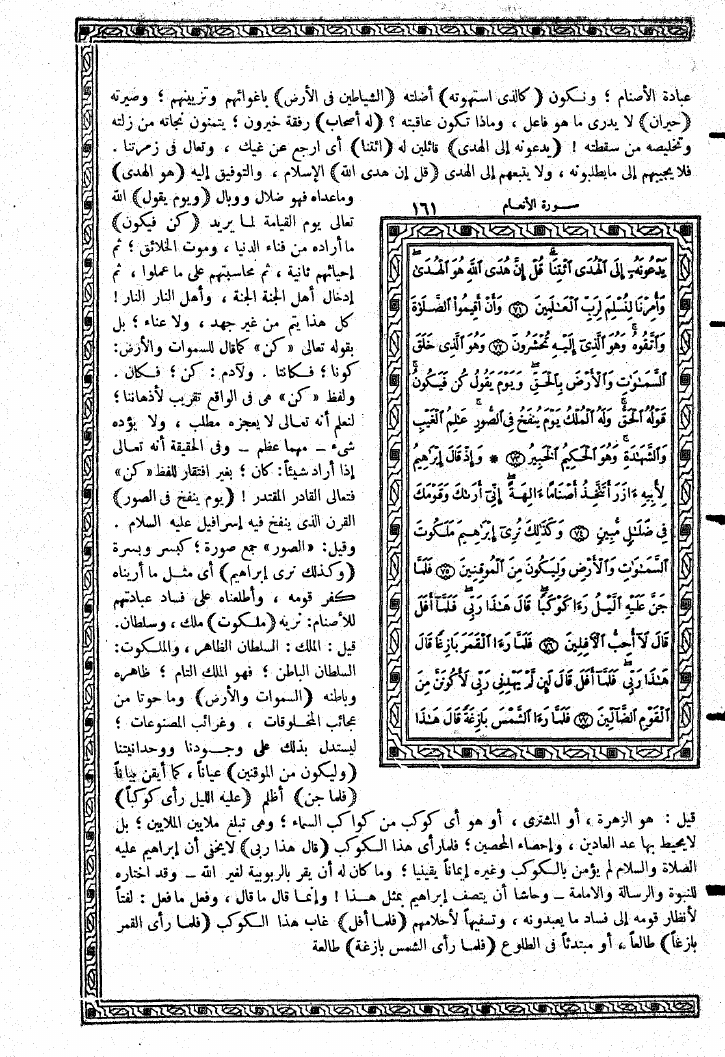 عبادة الأصنام ؛ ونكون (كالذى استهوته) أضلته (الشياطين فى الأرض) باغوائهم وتزيينهم ؛ وصيرته
(حيران) لا يدرى ما هو فاعل ، وماذا تكون عاقبته ؟ (له أصحاب) رفقة خيرون ؛ يتمنون نجاته من زلته
وتخليصه من سقطته ! (يدعونه إلى الهدى) قائلين له (ائتنا) أى ارجع عن غيك ، وتعال فى زمرتنا .
فلا يجيبهم إلى مايطلبونه ، ولا يتبعهم إلى الهدى (قل إن هدى الله) الإسلام ، والتوفيق إليه (هو الهدى)
وماعداه فهو ضلال ووبال (ويوم يقول) الله
تعالى يوم القيامة لما يريد (كن فيكون)
ما أراده من فناء الدنيا ، وموت الخلائق ؛ ثم
إحيائهم ثانية ، ثم محاسبتهم على ما عملوا ، ثم
إدخال أهل الجنة الجنة ، وأهل النار النار !
كل هذا يتم من غير جهد ، ولا عناء ؛ بل
بقوله تعالى «كن» كماقال للسموات والأرض:
كونا ؛ فكانتا . ولآدم : كن ؛ فكان .
ولفظ «كن» هى فى الواقع تقريب لأذهاننا ؛
لنعلم أنه تعالى لا يعجزه مطلب ، ولا يؤده
شىء — مهما عظم — وفى الحقيقة أنه تعالى
إذا أراد شيئاً: كان ؛ بغير افتقار للفظ «كن»
فتعالى القادر المقتدر ! (يوم ينفخ فى الصور)
القرن الذى ينفخ فيه إسرافيل عليه السلام .
وقيل: «الصور» جمع صورة ؛ كبسر وبسرة
(وكذلك نرى إبراهيم) أى مثل ما أريناه
كفر قومه ، وأطلعناه على فساد عبادتهم
للأصنام: نريه (ملكوت) ملك ، وسلطان.
قيل : الملك: السلطان الظاهر ، والملكوت:
السلطان الباطن ؛ فهو الملك التام ؛ ظاهره
وباطنه (السموات والأرض) وما حوتا من
عجائب المخلوقات ، وغرائب المصنوعات ؛
ليستدل بذلك على وجودنا ووحدانيتنا
(وليكون من الموقنين) عياناً ، كما أيقن بياناً
(فلما جن) أظلم (عليه الليل رأى كوكباً)
سورة الأنعام ١٦١
يَدْعُونَهُۥٓ إِلَى ٱلْهُدَى ٱئْتِنَا ۗ قُلْ إِنَّ هُدَى ٱللَّهِ هُوَ ٱلْهُدَىٰ ۖ
وَأُمِرْنَا لِنُسْلِمَ لِرَبِّ ٱلْعَٰلَمِينَ ﴿٧١﴾ وَأَنْ أَقِيمُوا۟ ٱلصَّلَوٰةَ
وَٱتَّقُوهُ ۚ وَهُوَ ٱلَّذِىٓ إِلَيْهِ تُحْشَرُونَ ﴿٧٢﴾ وَهُوَ ٱلَّذِى خَلَقَ
ٱلسَّمَٰوَٰتِ وَٱلْأَرْضَ بِٱلْحَقِّ ۖ وَيَوْمَ يَقُولُ كُن فَيَكُونُ ۚ
قَوْلُهُ ٱلْحَقُّ ۚ وَلَهُ ٱلْمُلْكُ يَوْمَ يُنفَخُ فِى ٱلصُّورِ ۚ عَٰلِمُ ٱلْغَيْبِ
وَٱلشَّهَٰدَةِ ۚ وَهُوَ ٱلْحَكِيمُ ٱلْخَبِيرُ ﴿٧٣﴾ * وَإِذْ قَالَ إِبْرَٰهِيمُ
لِأَبِيهِ ءَازَرَ أَتَتَّخِذُ أَصْنَامًا ءَالِهَةً ۖ إِنِّىٓ أَرَىٰكَ وَقَوْمَكَ
فِى ضَلَٰلٍ مُّبِينٍ ﴿٧٤﴾ وَكَذَٰلِكَ نُرِىٓ إِبْرَٰهِيمَ مَلَكُوتَ
ٱلسَّمَٰوَٰتِ وَٱلْأَرْضِ وَلِيَكُونَ مِنَ ٱلْمُوقِنِينَ ﴿٧٥﴾ فَلَمَّا
جَنَّ عَلَيْهِ ٱلَّيْلُ رَءَا كَوْكَبًا ۖ قَالَ هَٰذَا رَبِّى ۖ فَلَمَّآ أَفَلَ
قَالَ لَآ أُحِبُّ ٱلْءَافِلِينَ ﴿٧٦﴾ فَلَمَّا رَءَا ٱلْقَمَرَ بَازِغًا قَالَ
هَٰذَا رَبِّى ۖ فَلَمَّآ أَفَلَ قَالَ لَئِن لَّمْ يَهْدِنِى رَبِّى لَأَكُونَنَّ مِنَ
ٱلْقَوْمِ ٱلضَّآلِّينَ ﴿٧٧﴾ فَلَمَّا رَءَا ٱلشَّمْسَ بَازِغَةً قَالَ هَٰذَا
قيل : هو الزهرة ، أو المشترى ، أو هو أى كوكب من كواكب السماء ؛ وهى تبلغ ملايين الملايين ؛ بل
لايحيط بها عد العادين ، وإحصاء المحصين ؛ فلمارأى هذا الكوكب (قال هذا ربى) لايخفى أن إبراهيم عليه
الصلاة والسلام لم يؤمن بالكوكب وغيره إيماناً يقينيا ؛ وما كان له أن يقر بالربوبية لغير الله — وقد اختاره
للنبوة والرسالة والامامة — وحاشا أن يتصف إبراهيم بمثل هذا ! وإنما قال ما قال ، وفعل ما فعل : لفتاً
لأنظار قومه إلى فساد ما يعبدونه ، وتسفيهاً لأحلامهم (فلما أفل) غاب هذا الكوكب (فلما رأى القمر
بازغاً) طالعاً ، أو مبتدئاً فى الطلوع (فلما رأى الشمس بازغة) طالعة